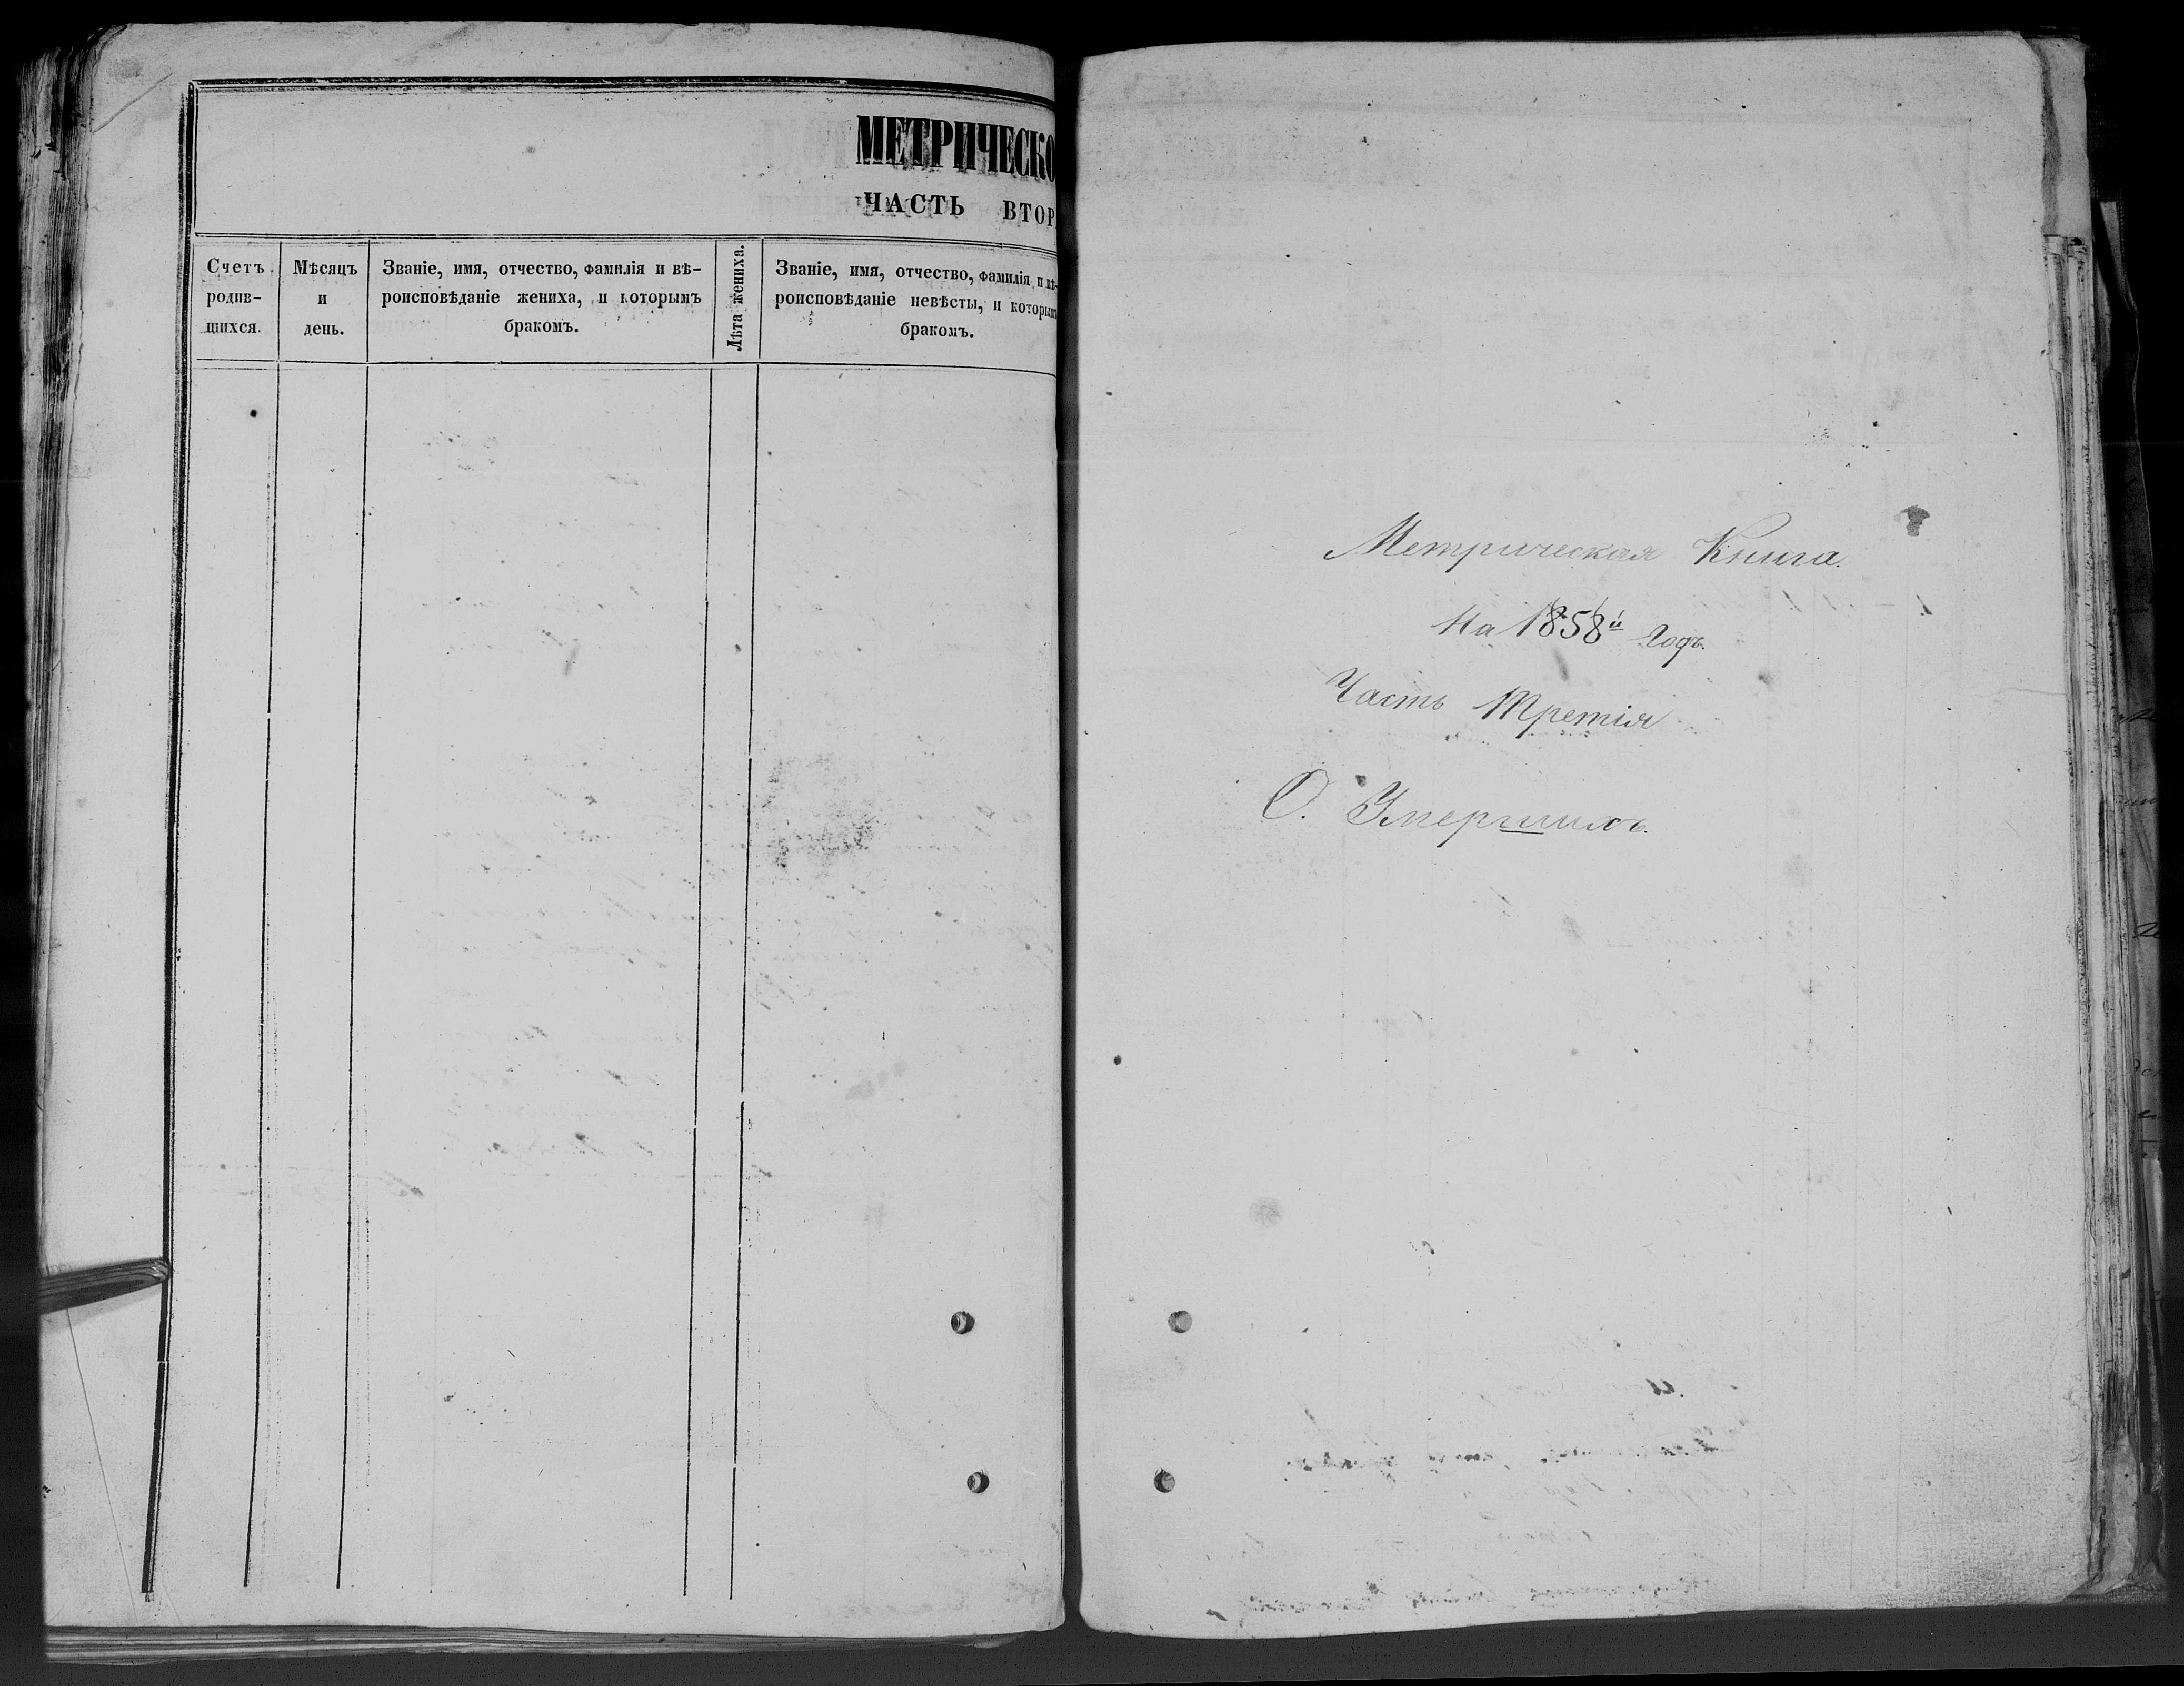 МЕТРИЧЕСКО
ЧАСТЬ ВТОР
Счетъ
родив-
шихся.
Мѣсяцъ
и
день.
Званіе, имя, отчество, фамилія и вѣ-
роисповѣданіе жениха, и которымъ
бракомъ.
Лѣта жениха.
Званіе, имя, отчество, фамилія и вѣ-
роисповѣданіе невѣсты, и которымъ
бракомъ.
Метрическая Книга.
На 1858й Годъ.
Часть Третія
О. Умершихъ.